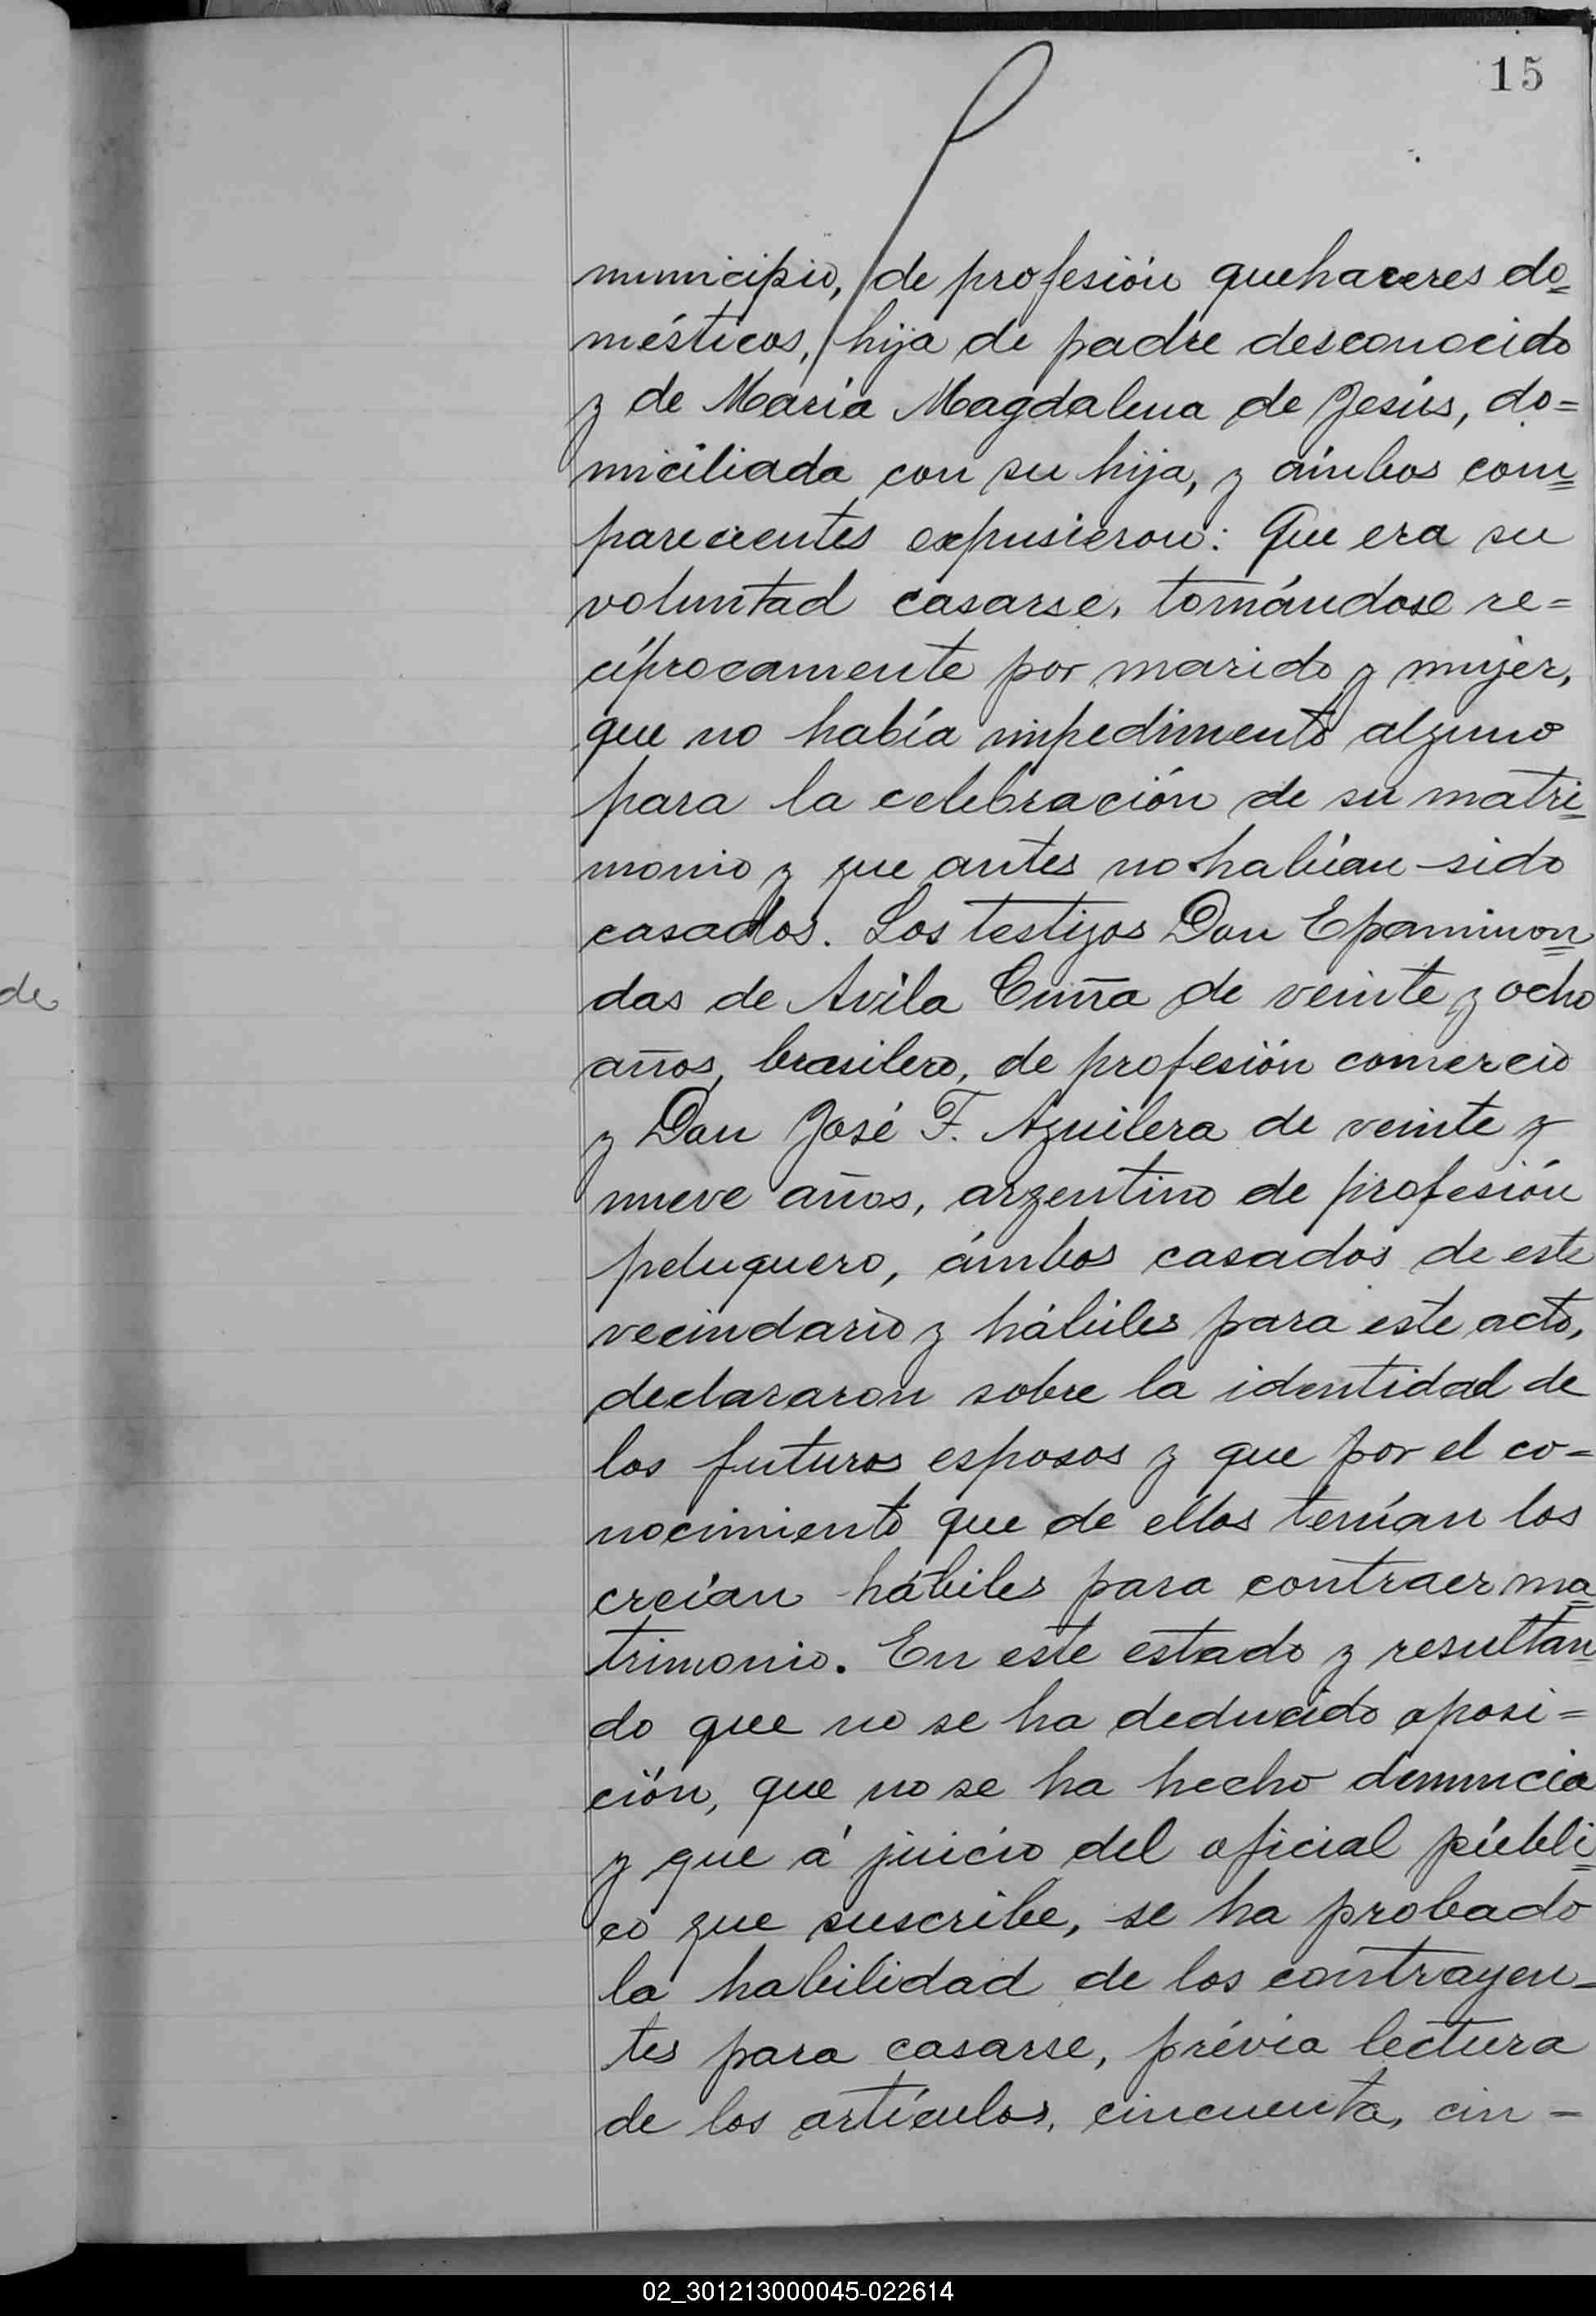 15
municipio, de profesión quehaceres do=
mésticos, hija de padre desconocido
y de María Magdalena de Jesús, do=
miciliada con su hija, y ámbos com=
parecientes expusieron: Que era su
voluntad casarse, tomándose re=
cíprocamente por marido y mujer,
que no había impedimento alguno
para la celebración de su matri=
monio y que antes no habían sido
casados. Los testigos Don Epaminon=
das de Avila Cuña de veinte y ocho
de
años, brasilero, de profesión comercio
y Don José F. Aguilera de veinte y
nueve años, argentino de profesión
peluquero, ámbos casados de este
vecindario y hábiles para este acto,
declararon sobre la identidad de
los futuros esposos y que por el co=
nocimiento que de ellos tenían los
creían hábiles para contraer ma=
trimonio. En este estado y resultan=
do que no se ha deducido oposi=
ción, que no se ha hecho denuncia
y que á juicio del oficial públi=
co que suscribe, se ha probado
la habilidad de los contrayen=
tes para casarse, prévia lectura
de los artículos, cincuenta, cin=
02_301213000045-022614